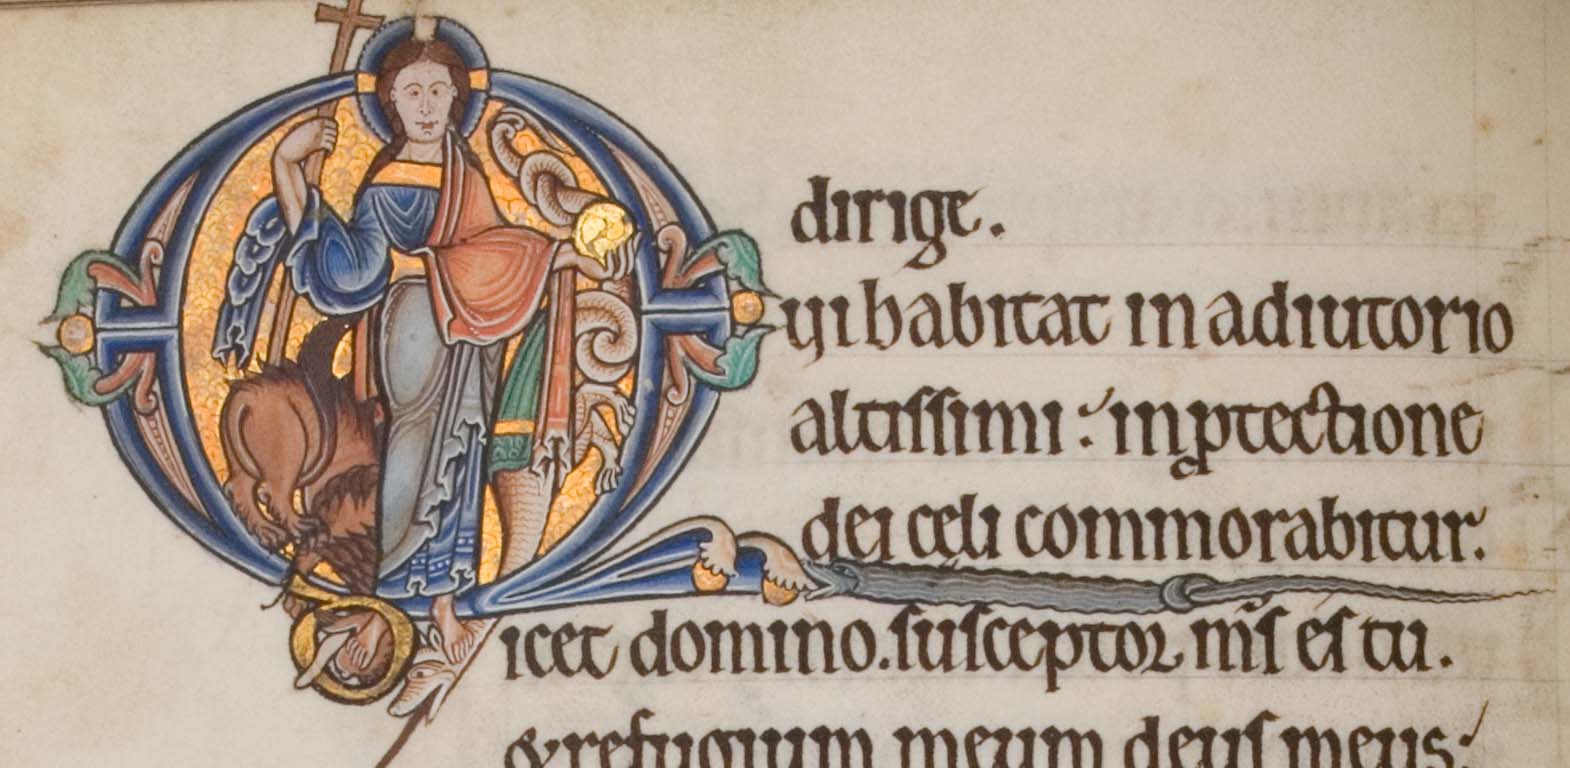 dirige.
Qui habitat in adiutorio
altissimi: in ꝓtectione
dei celi commorabitur.
Dicet domino. susceptor ms̄ es tu.
& refugium meum deus meus: